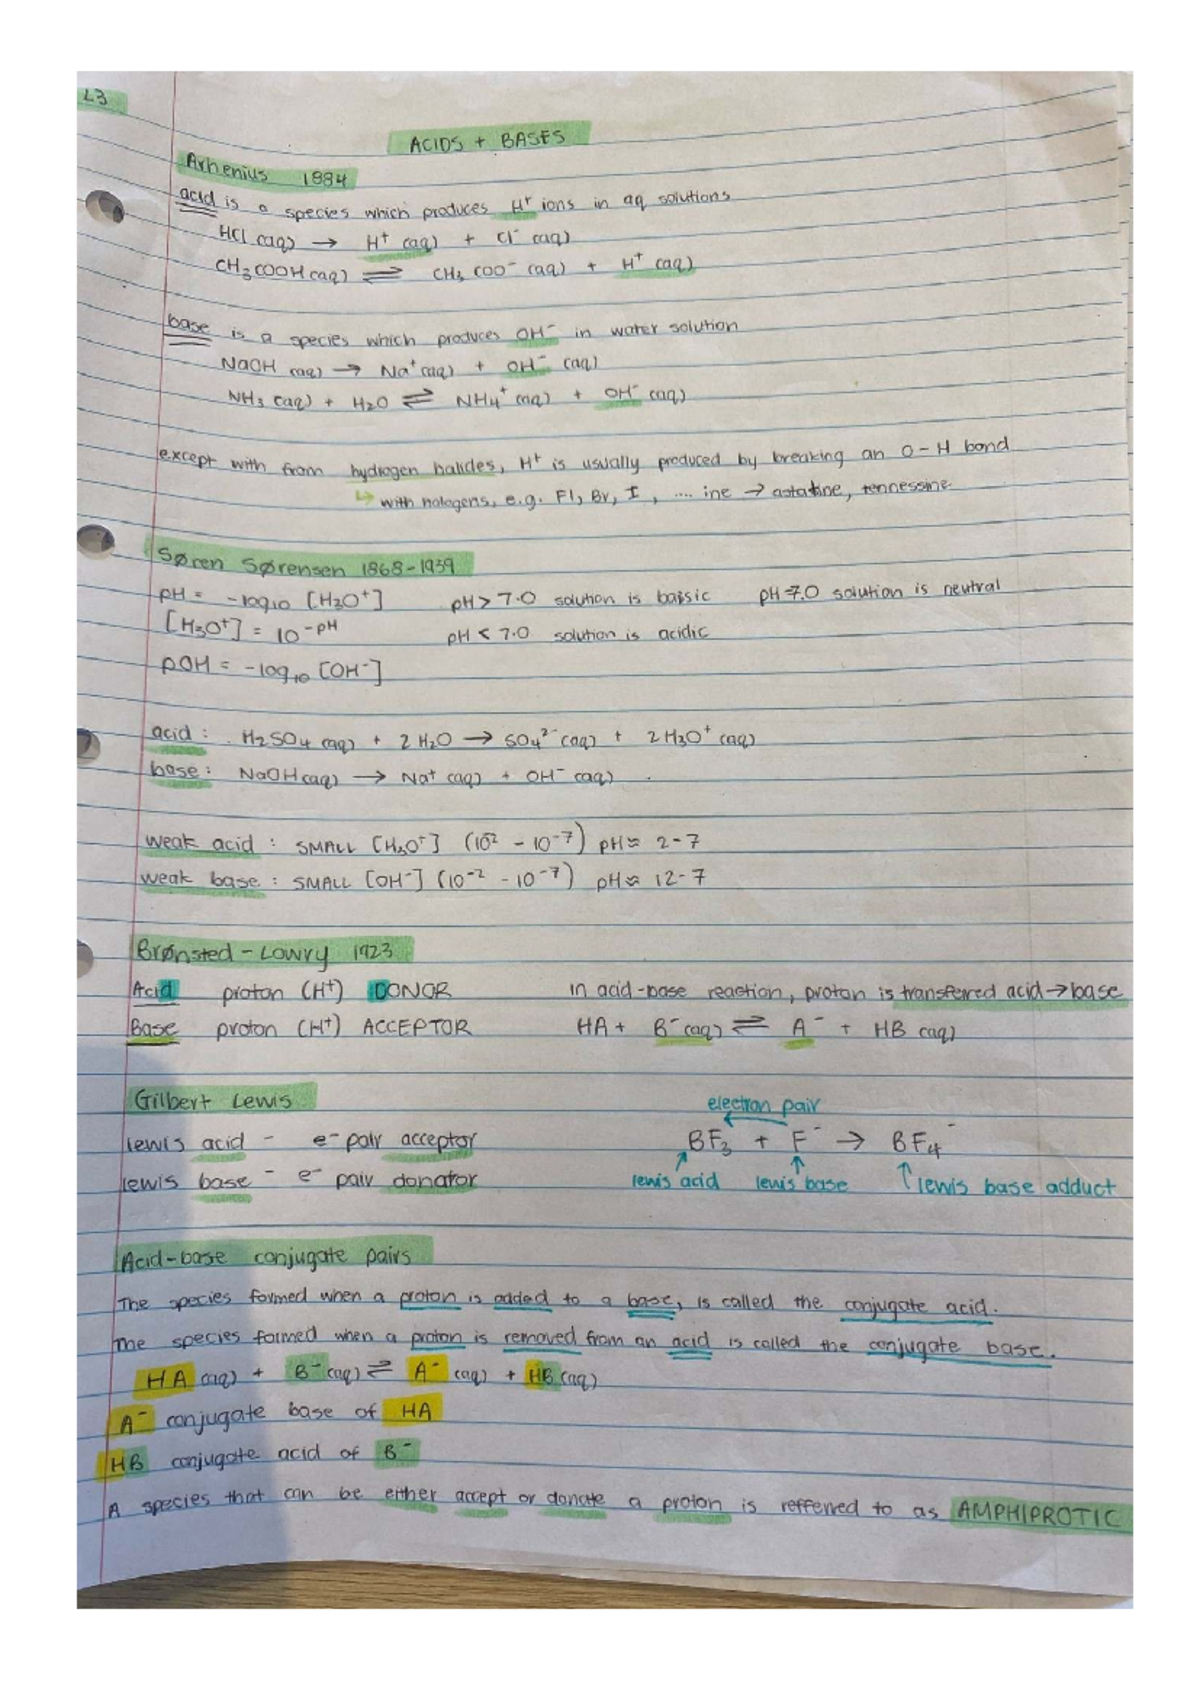 L3
ACIDS + BASES
Arhenius 1884
acid is a species which produces H⁺ ions in aq solutions
HCl (aq) → H⁺ (aq) + Cl⁻ (aq)
CH₃COOH(aq) ⇌ CH₃COO⁻ (aq) + H⁺ (aq)
base is a species which produces OH⁻ in water solution
NaOH (aq) → Na⁺(aq) + OH⁻ (aq)
NH₃ (aq) + H₂O ⇌ NH₄⁺ (aq) + OH⁻ (aq)
except with from hydrogen halides, H⁺ is usually produced by breaking an O-H bond
↳ with halogens, e.g. Fl, Br, I, .... ine → astatine, tennessine
Søren Sørensen 1868-1939
pH = -log₁₀ [H₃O⁺] pH > 7.0 solution is baisic pH = 7.0 solution is neutral
[H₃O⁺] = 10^-pH pH < 7.0 solution is acidic
pOH = -log₁₀ [OH⁻]
acid: H₂SO₄ (aq) + 2H₂O → SO₄²⁻ (aq) + 2H₃O⁺ (aq)
base: NaOH(aq) → Na⁺ (aq) + OH⁻ (aq)
weak acid: SMALL [H₃O⁺] (10⁻² - 10⁻⁷) pH ≈ 2-7
weak base: SMALL [OH⁻] (10⁻² - 10⁻⁷) pH ≈ 12-7
Brønsted-Lowry 1923
Acid proton (H⁺) DONOR in acid-base reaction, proton is transferred acid→base
Base proton (H⁺) ACCEPTOR HA + B⁻(aq) ⇌ A⁻ + HB (aq)
Gilbert Lewis electron pair
lewis acid - e⁻ pair acceptor BF₃ + F⁻ → BF₄⁻
lewis base - e⁻ pair donator lewis acid lewis base lewis base adduct
Acid-base conjugate pairs
The species formed when a proton is added to a base, is called the conjugate acid.
The species formed when a proton is removed from an acid is called the conjugate base.
HA (aq) + B⁻(aq) ⇌ A⁻ (aq) + HB (aq)
A⁻ conjugate base of HA
HB conjugate acid of B⁻
A species that can be either accept or donate a proton is refferred to as AMPHIPROTIC